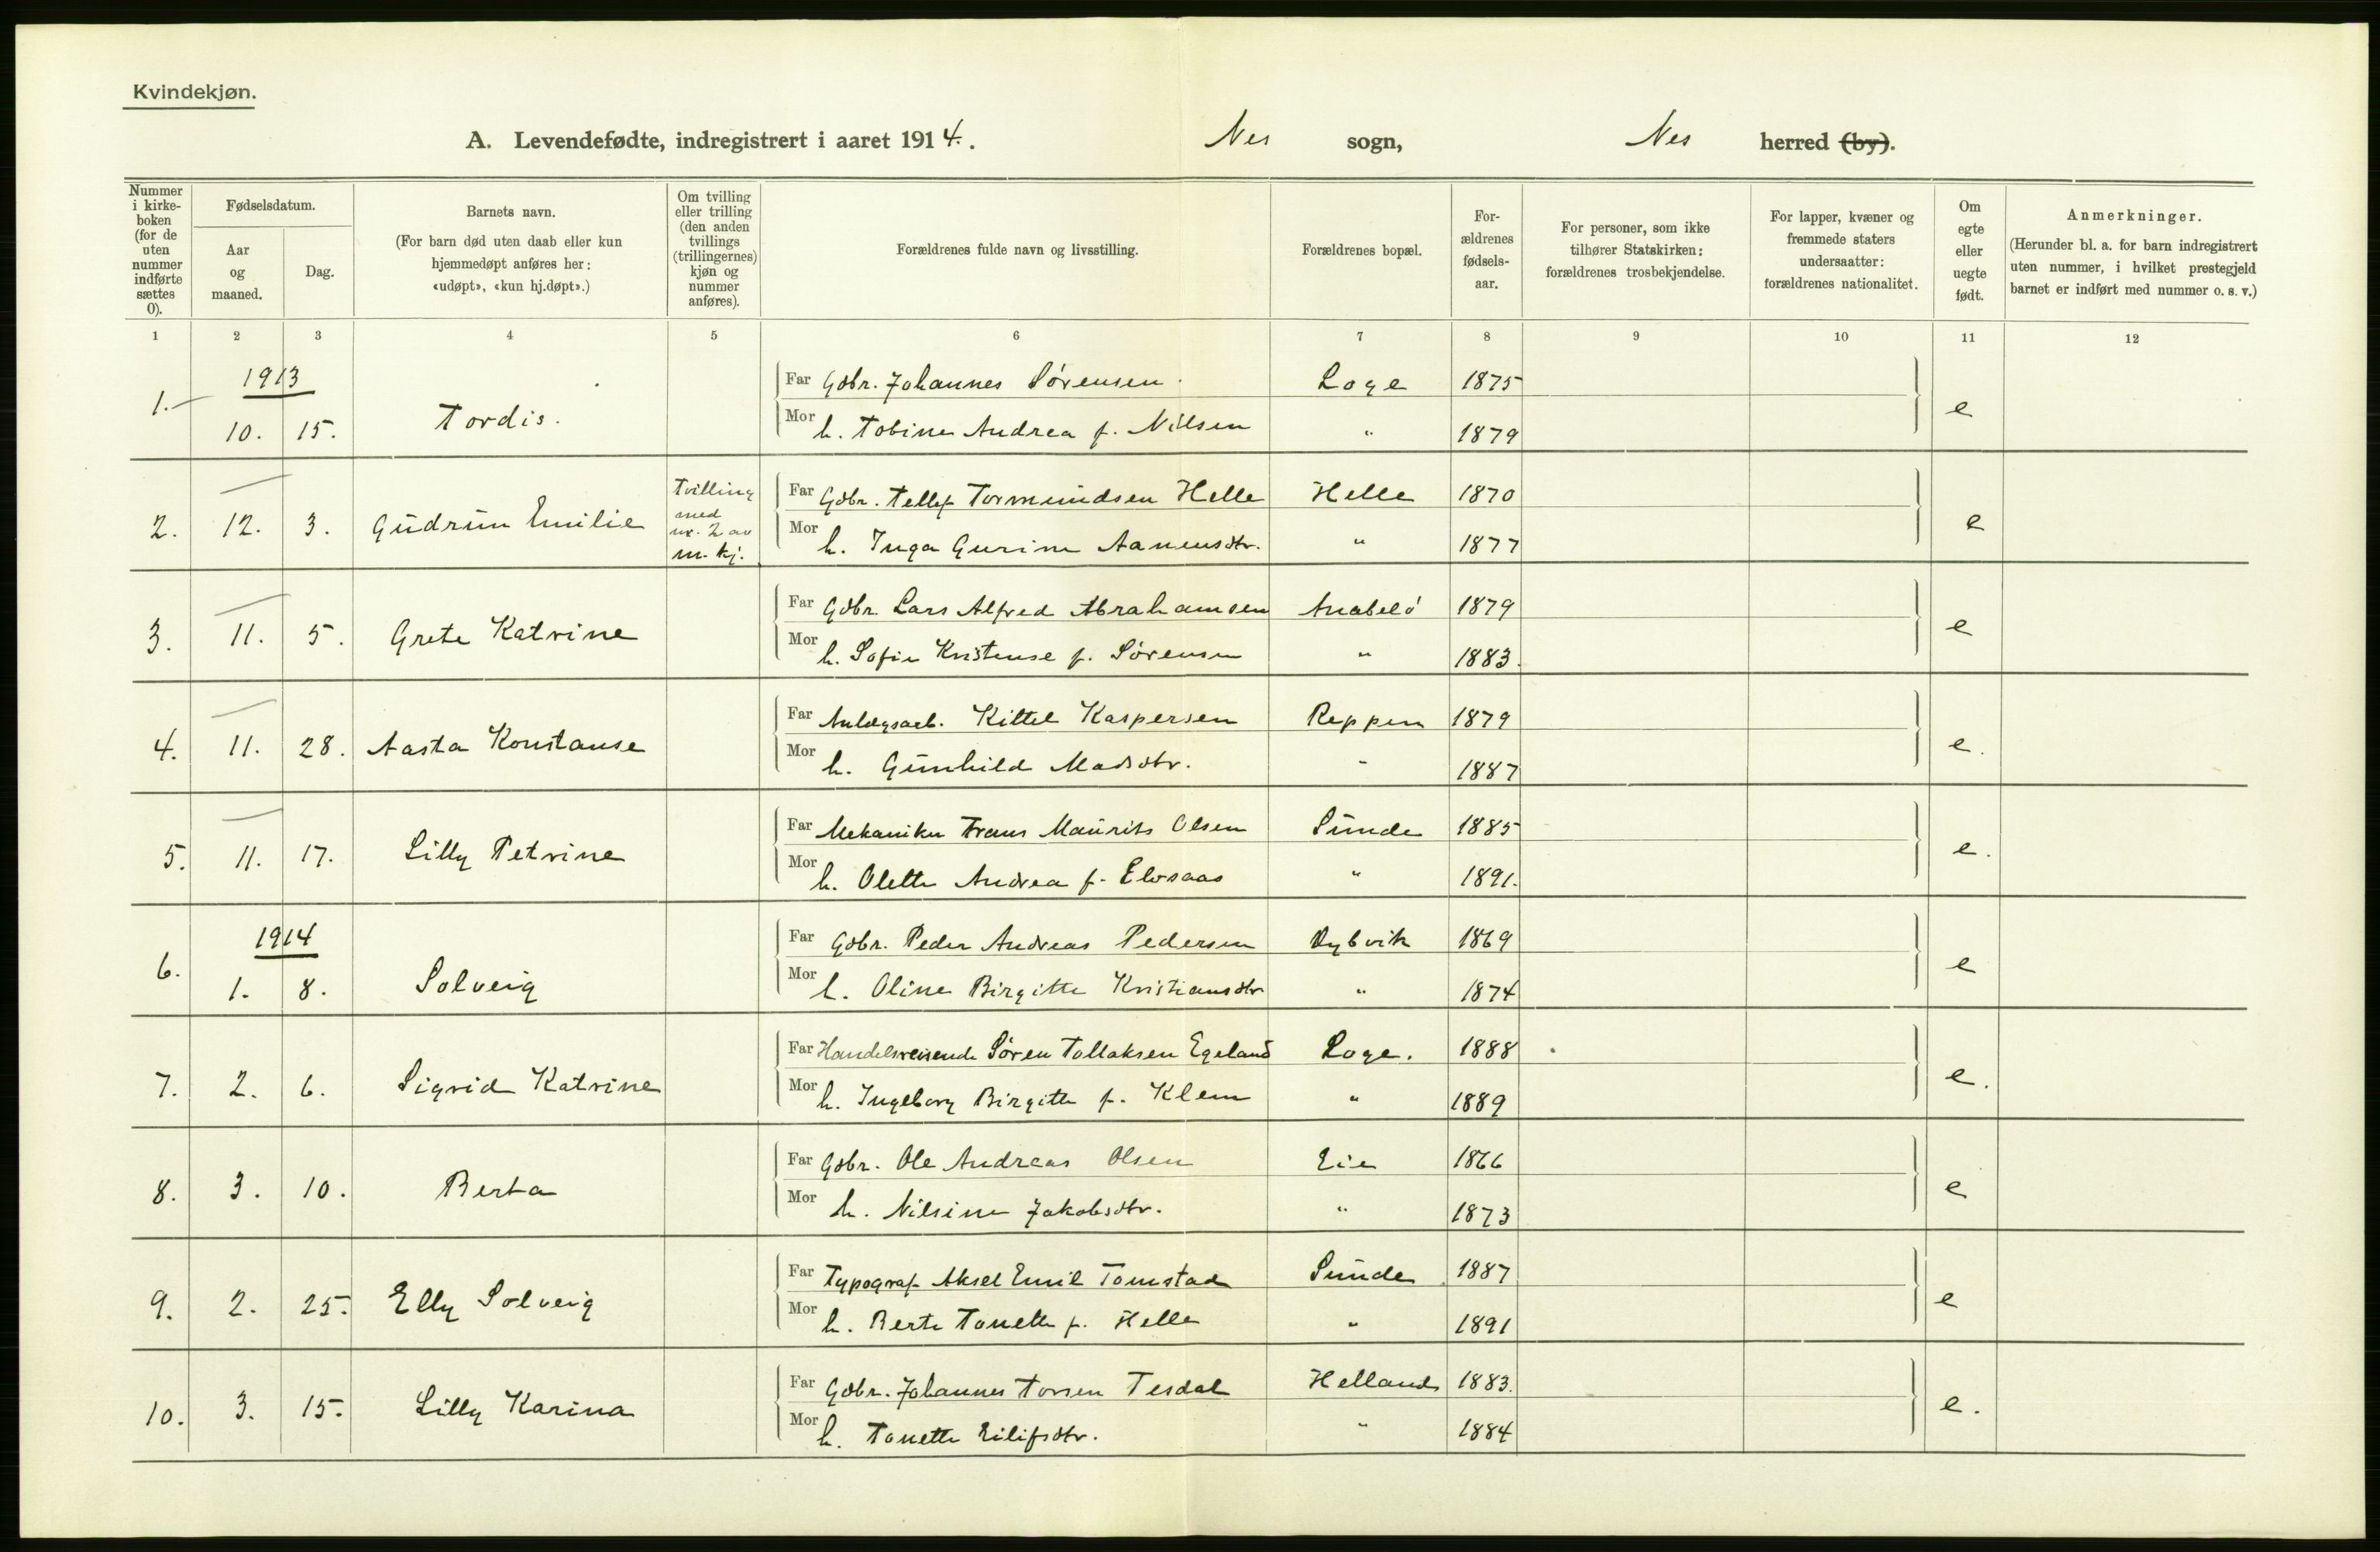 Kvindekjøn.
A. Levendefødte, indregistrert i aaret 1914. Nes sogn, Nes herred (by).
Nummer i kirke-boken (for de uten nummer indførte sættes 0).
Fødselsdatum.
Aar og maaned.
Dag.
Barnets navn.
(For barn død uten daab eller kun hjemmedøpt anføres her: «udøpt», «kun hj.døpt».)
Om tvilling eller trilling (den anden tvillings (trillingernes) kjøn og nummer anføres).
Forældrenes fulde navn og livsstilling.
Forældrenes bopæl.
For-ældrenes fødsels-aar.
For personer, som ikke tilhører Statskirken: forældrenes trosbekjendelse.
For lapper, kvæner og fremmede staters undersaatter: forældrenes nationalitet.
Om egte eller uegte født.
Anmerkninger.
(Herunder bl. a. for barn indregistrert uten nummer, i hvilket prestegjeld barnet er indført med nummer o. s. v.)
1 2 3 4 5 6 7 8 9 10 11 12
1913
1. 10. 15. Tordis.
Far Gdbr. Johannes Sørensen Loge 1875
Mor h. Tobine Andrea f. Nilsen " 1879 e
2. 12. 3. Gudrun Emilie Tvilling med nr. 2 av m. kj.
Far Gdbr. Tellef Tormundsen Helle Helle 1870
Mor h. Inga Gurine Aanensdtr. " 1877 e
3. 11. 5. Grete Katrine
Far Gdbr. Lars Alfred Abrahamsen Anabelø 1879
Mor h. Sofie Kristense f. Sørensen " 1883. e
4. 11. 28. Aasta Konstanse
Far Anlægsarb. Kittel Kaspersen Reppen 1879
Mor h. Gunhild Madsdtr. " 1887 e.
5. 11. 17. Lilly Petrine
Far Mekaniker Frans Maurits Olsen Sunde 1885
Mor h. Olette Andrea f. Elvsaas " 1891. e.
1914
6. 1. 8. Solveig
Far Gdbr. Peder Andreas Pedersen Dybvik 1869
Mor h. Oline Birgitte Kristiansdtr " 1874 e
7. 2. 6. Sigrid Katrine
Far Handelsreisende Søren Tallaksen Egeland Loge. 1888
Mor h. Ingeborg Birgitte f. Klem " 1889 e.
8. 3. 10. Berta
Far Gdbr. Ole Andreas Olsen Eie 1866
Mor h. Nilsine Jakobsdtr. " 1873 e
9. 2. 25. Elly Solveig
Far Typograf Aksel Emil Tomstad Sunde 1887
Mor h. Berte Tonette f. Helle " 1891 e
10. 3. 15. Lilly Karina
Far Gdbr. Johannes Torsen Tesdal Helland 1883.
Mor h. Tonette Eilifsdtr. " 1884 e.